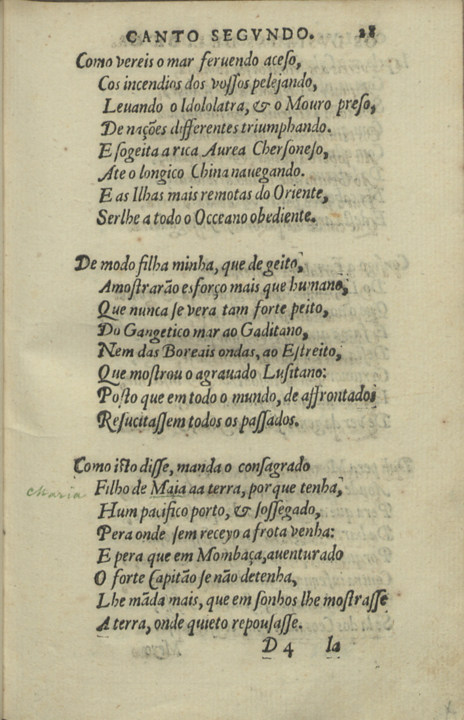 CANTO SEGVNDO. 28
Como vereis o mar feruendo aceſo,
Cos incendios dos voſſos pelejando,
Leuando o Idololatra, & o Mouro preſo,
De nações differentes triumphando.
E ſogeita a rica Aurea Cherſoneſo,
Ate o longico China nauegando.
E as Ilhas mais remotas do Oriente,
Serlhe a todo o Occeano obediente.
De modo filha minha, que de geito,
Amoſtrarão esforço mais que humano,
Que nunca ſe vera tam forte peito,
Do Gangetico mar ao Gaditano,
Nem das Boreais ondas, ao Eſtreito,
Que moſtrou o agrauado Luſitano:
Poſto que em todo o mundo, de affrontados
Reſucitaſſem todos os paſſados.
Como iſto diſſe, manda o conſagrado
Maria
Filho de Maia aa terra, porque tenha,
Hum pacifico porto, & ſoſſegado,
Pera onde ſem receyo a frota venha:
E pera que em Mombaça, auenturado
O forte Capitão ſe não detenha,
Lhe mãda mais, que em ſonhos lhe moſtraſſe
A terra, onde quieto repouſaſſe.
D 4 Ia